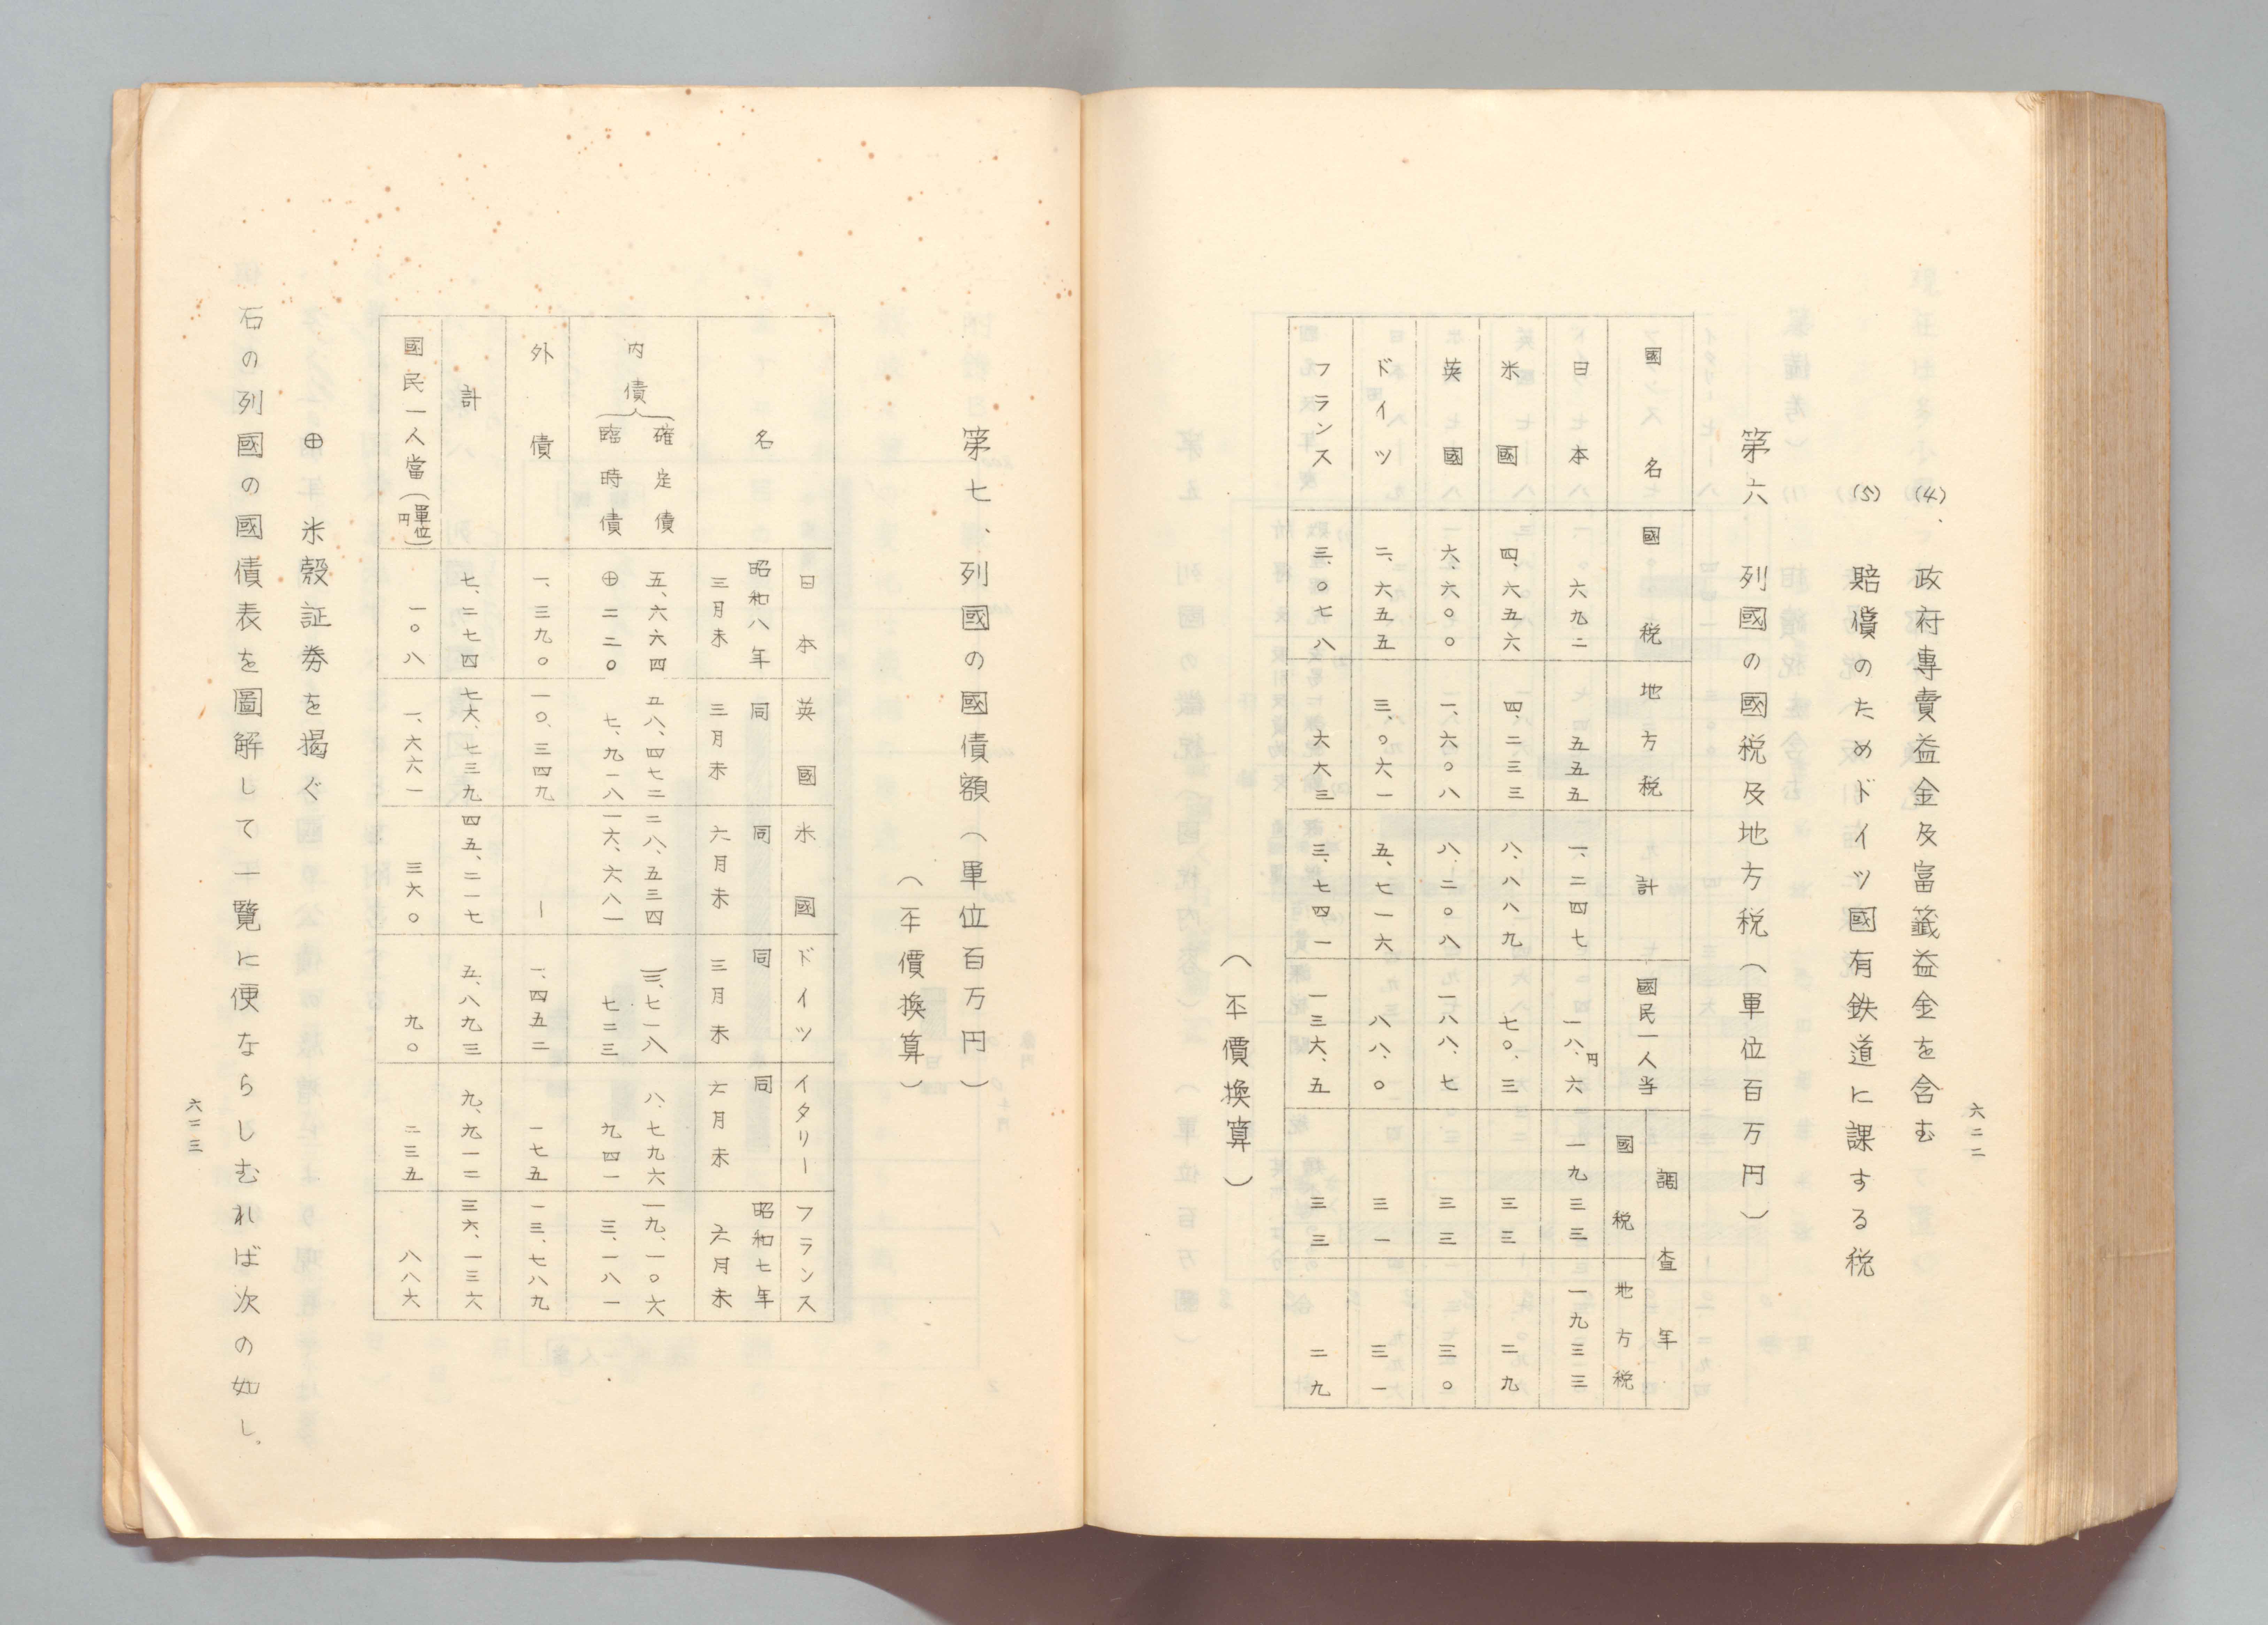 六二二
(4)、政府專賣益金及富籤益金を含む
(5) 賠償のためドイツ國有鉄道に課する税
第六 列國の國税及地方税（單位百万円）
國名 國税 地方税 計 國民一人当 調査年
國税 地方税
日本 六九二 五五五 一、二四七 一八、六円 一九三三 一九三三
米國 四、六五六 四、二三三 八、八八九 七〇、三 三三 二九
英國 六、六〇〇 一、六〇八 八、二〇八 一八八、七 三三 三〇
ドイツ 二、六五五 三、〇六一 五、七一六 八八、〇 三一 三一
フランス 三、〇七八 六六三 三、七四一 一三六、五 三三 二九
（平價換算）
第七、列國の國債額（單位百万円）
（平價換算）
名 日本 英國 米國 ドイツ イタリー フランス
昭和八年三月末 同三月末 同六月末 同三月末 同六月末 昭和七年六月末
内債 確定債 五、六六四 五八、四七二 二八、五三四 三、七一八 八、七九六 一九、一〇六
臨時債 ⊕二二〇 七、九一八 一六、六八一 七二三 九四一 三、一八一
外債 一、三九〇 一〇、三四九 ー 一、四五二 一七五 一三、七八九
計 七、二七四 七六、七三九 四五、二一七 五、八九三 九、九一二 三六、一三六
國民一人當（單位円） 一〇八 一、六六一 三六〇 九〇 二三五 八八六
⊕ 米穀証券を揭ぐ
右の列國の國債表を圖解して一覽に便ならしむれば次の如し。
六二三